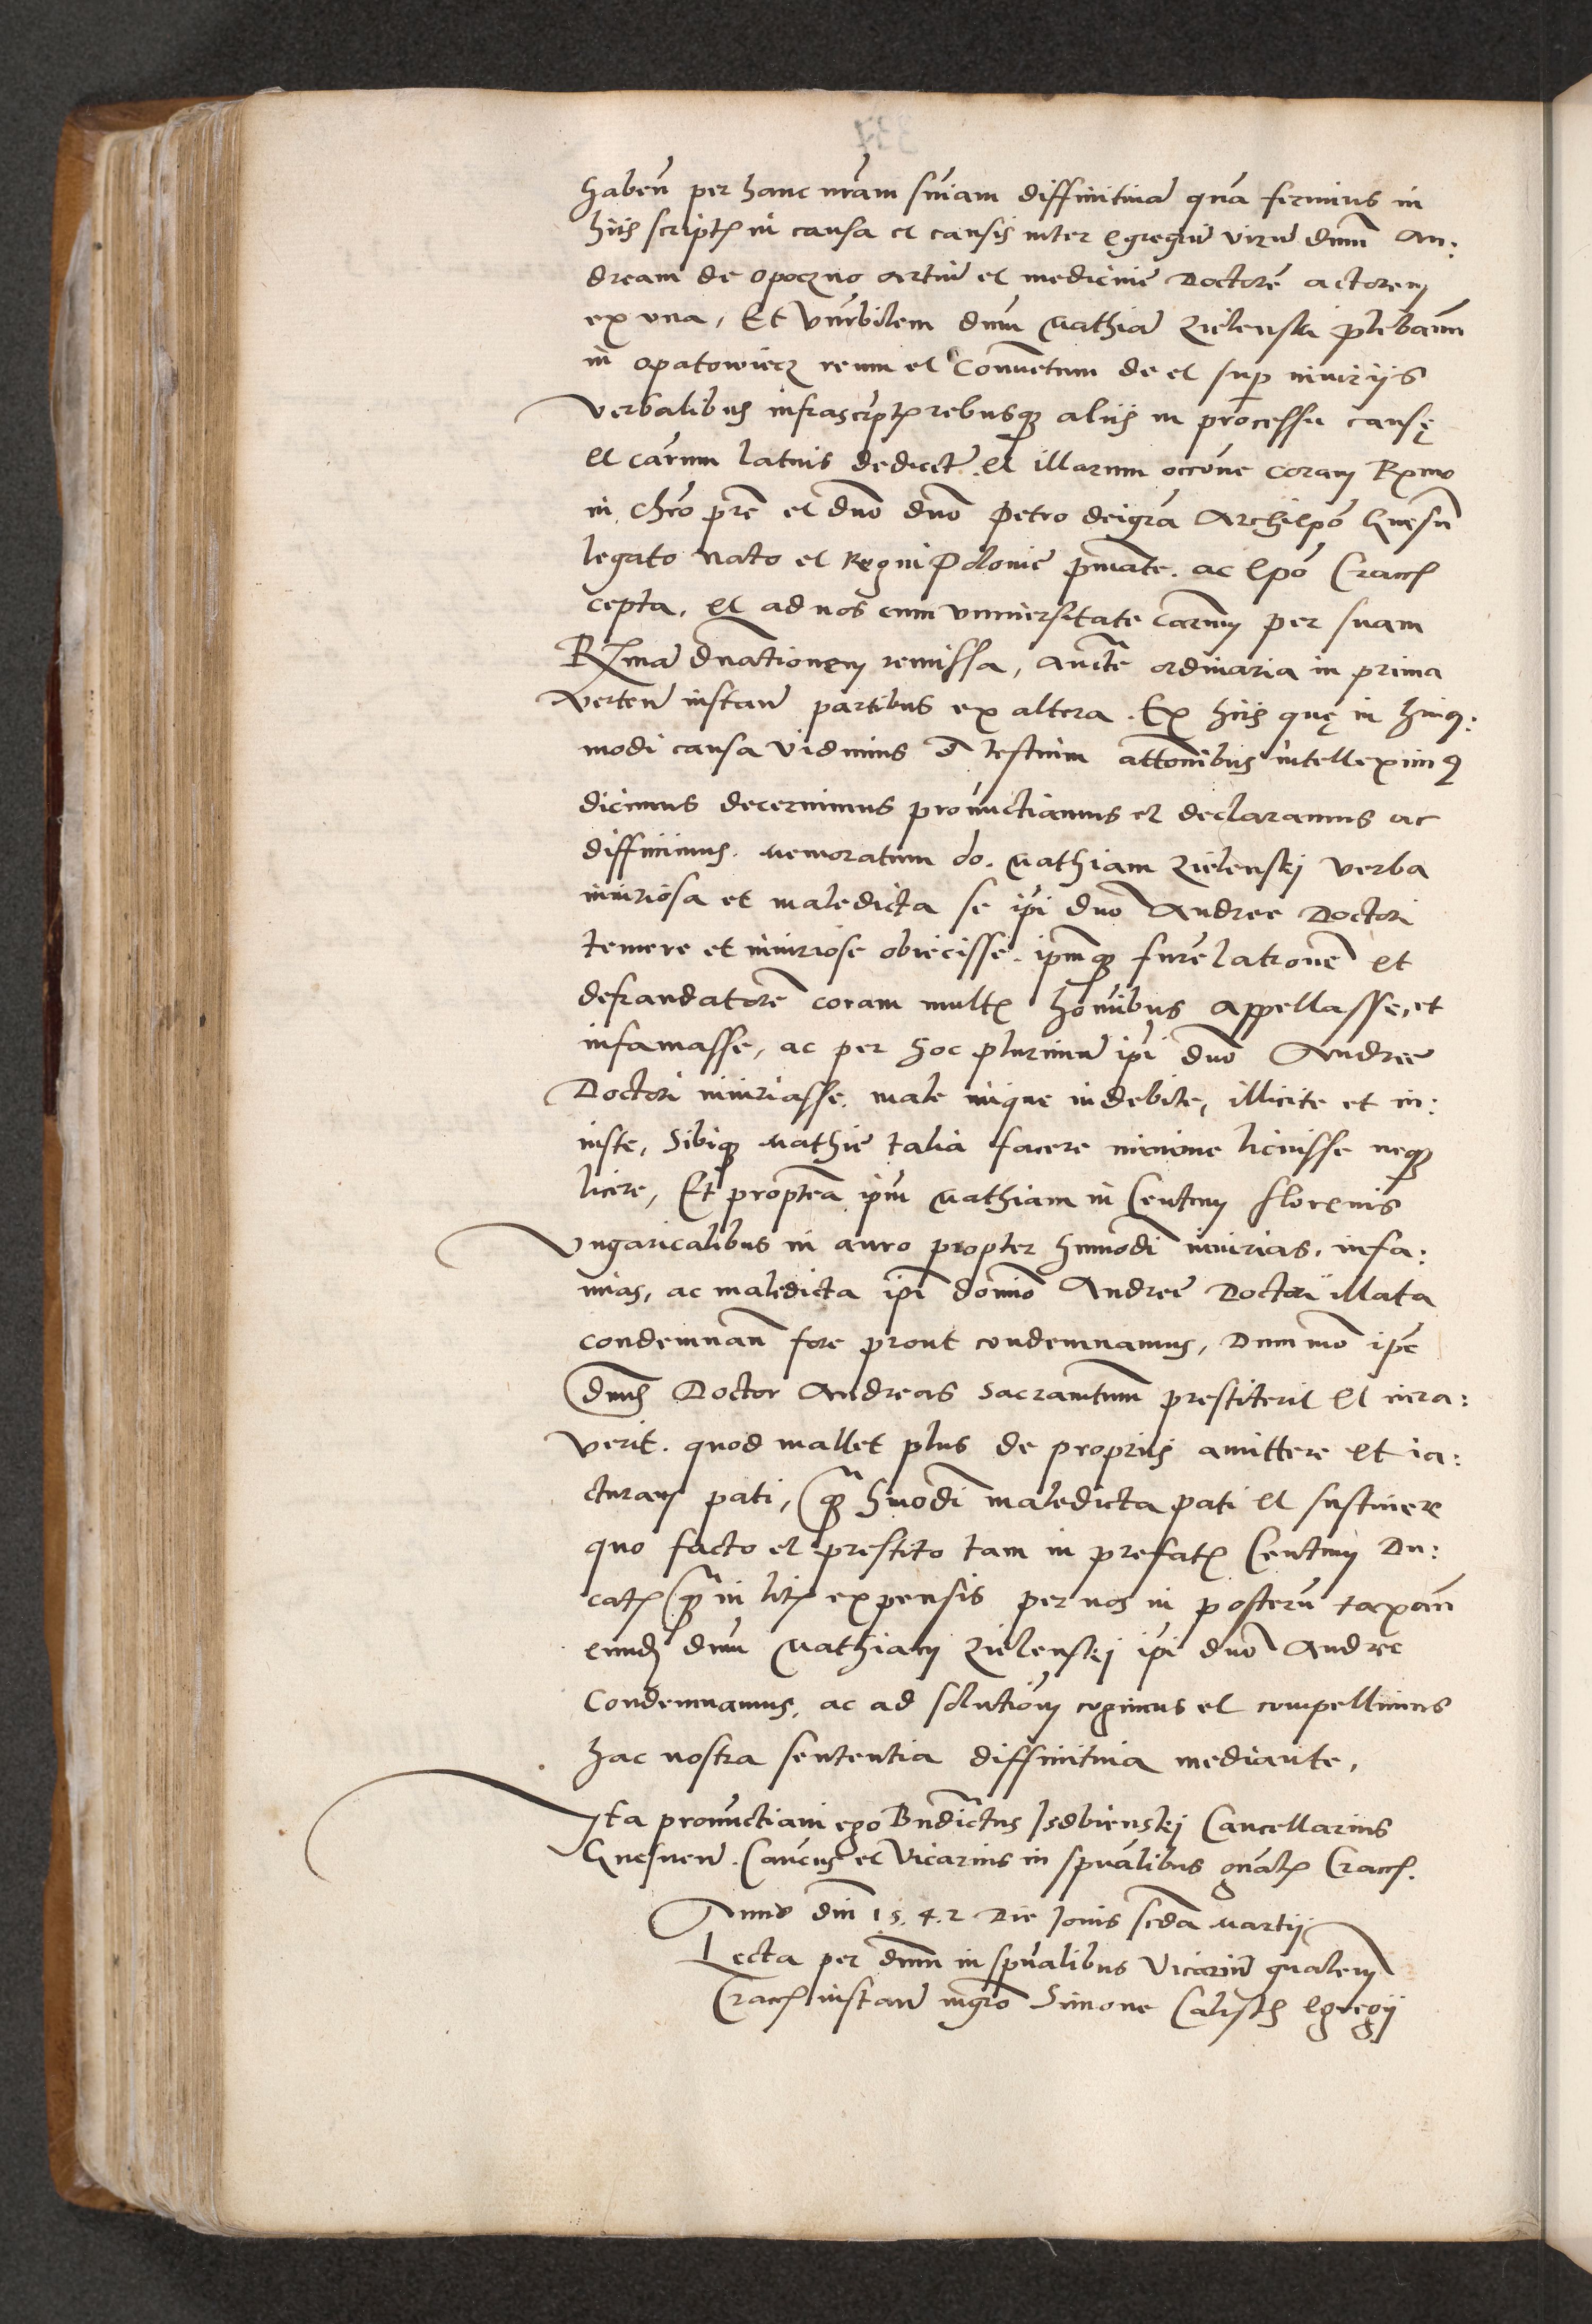 haben̄ per hanc nr̄am sn̄iam diffinitiuā quā ferimus in
hiis scriptꝭ in causa et causis inter egregiū virū dnūm An:
dream de opoczno artiū et medicinę Doctorē actorem
ex vna, Et Vnr̄bilem dnūm Mathiā Zielenski plebanū
in opatowiecz reum et Conuentum de et supr̄ iniuriis
verbalibus infrascriptꝭ rebusqꝫ aliis in processu causę
et earum latius dedictꝭ et illarum occōne coram Rx̄mo
in Chrō prē et dnō dnō Petro dei gr̄a Archiepō Gnesn̄
legato nato et Regni Polonię primāte ac Epō Cracꝭ
cepta, et ad nos cum vniuersitate earum per suam
Rx̄mā dnātionem remissa, auctē ordinaria in prima
verten̄ instan̄ partibus ex altera. Ex hiis quę in huiꝰ:
modi causa vidimus et testium attōnibus intelleximꝰ
dicimus decernimus pronūctiamus et declaramus ac
diffinimus. memoratum do. Mathiam Zielenskj verba
iniuriosa et maledicta se ipi dnō Andree Doctori
temere et iniuriose obiecisse. ipm̄qꝫ furē latronē et
defraudatorē coram multꝭ hoīnibus appellasse, et
infamasse, ac per hoc plurimū ipi dnō Andreę
Doctori iniuriasse. male inique indebite, illicite et in:
iuste, Sibiqꝫ Mathię talia facere minime licuisse neqꝫ
licere, Et propterea ipm̄ Mathiam in Centum florenis
Vngaricalibus in auro propter huiūmodi iniurias, infa:
mias, ac maledicta ipi domīo Andreę Doctori illata
condemnan̄ fore prout condemnamus, Dum mō ipē
dnūs Doctor Andreas Sacramn̄tum prestiterit et iura:
verit. quod mallet plus de propriis amittere et ia:
cturam pati, qꝫ̄ hmōdi maledicta pati et sustinere
quo facto et prestito tam in prefatꝭ Centum Du:
catꝭ qꝫ̄ in litꝭ expensis per nos in posterū taxan̄
eundꝫ dnūm Mathiam Zielenskj ipi dnō Andree
Condemnamus, ac ad solutiōem cogimus et compellimus
hac nostra sententia diffinitiua mediante,
Ita pronūctiaui ego Bn̄dictus Isdbienskj Cancellarius
Gnesnen̄. Canōcus et Vicarius in sprūalibus gn̄alꝭ Cracꝭ.
Anno dnī 15.4.2 Die Iouis scdā Martij
Lecta per dnūm in sprūalibus Vicariū gn̄alem
Cracꝭ instan̄ mgrō Simone Calisth egregij